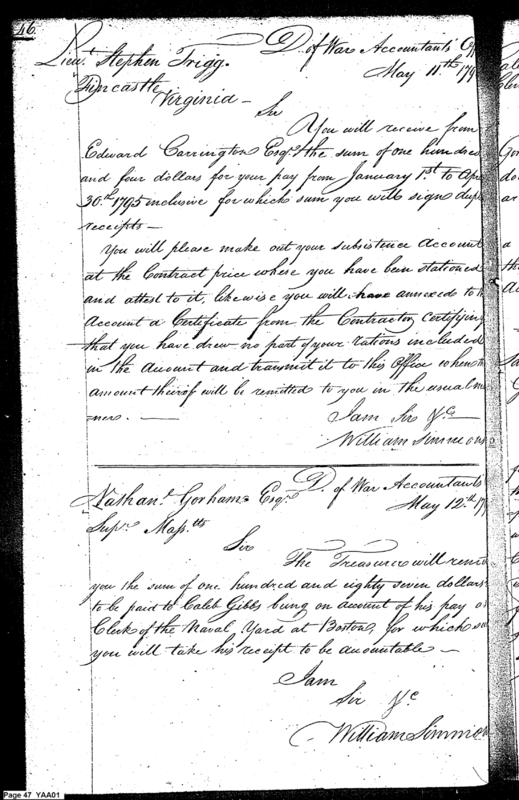 46
Lieut. Stephen Trigg. D of War Accountants Off
Fincastle May 11th 179
Virginia —
Sir
You will receive from
Edward Carrington Esqr. the sum of one hundred
and four dollars for your pay from January 1st to Apr
30th 1795 inclusive for which sum you will sign dupl
receipts —
You will please make out your subsistence Account
at the Contract price where you have been stationed
and attest to it, likewise you will have annexed to th
Account a Certificate from the Contractor, certifying
that you have drew no part of your rations included
in the Account and transmit it to this Office when th
amount thereof will be remitted to you in the usual m
=ner. —
I am Sir &c
William Simmons
Nathanl. Gorham Esqr. D. of War Accountants
Supr. Massts May 12th 17
Sir
The Treasurer will remit
you the sum of one hundred and eighty seven dollars
to be paid to Caleb Gibbs being on account of his pay as
Clerk of the Naval Yard at Boston, for which su
you will take his receipt to be accountable —
I am
Sir &c
William Simmon
Page 47 YAA01